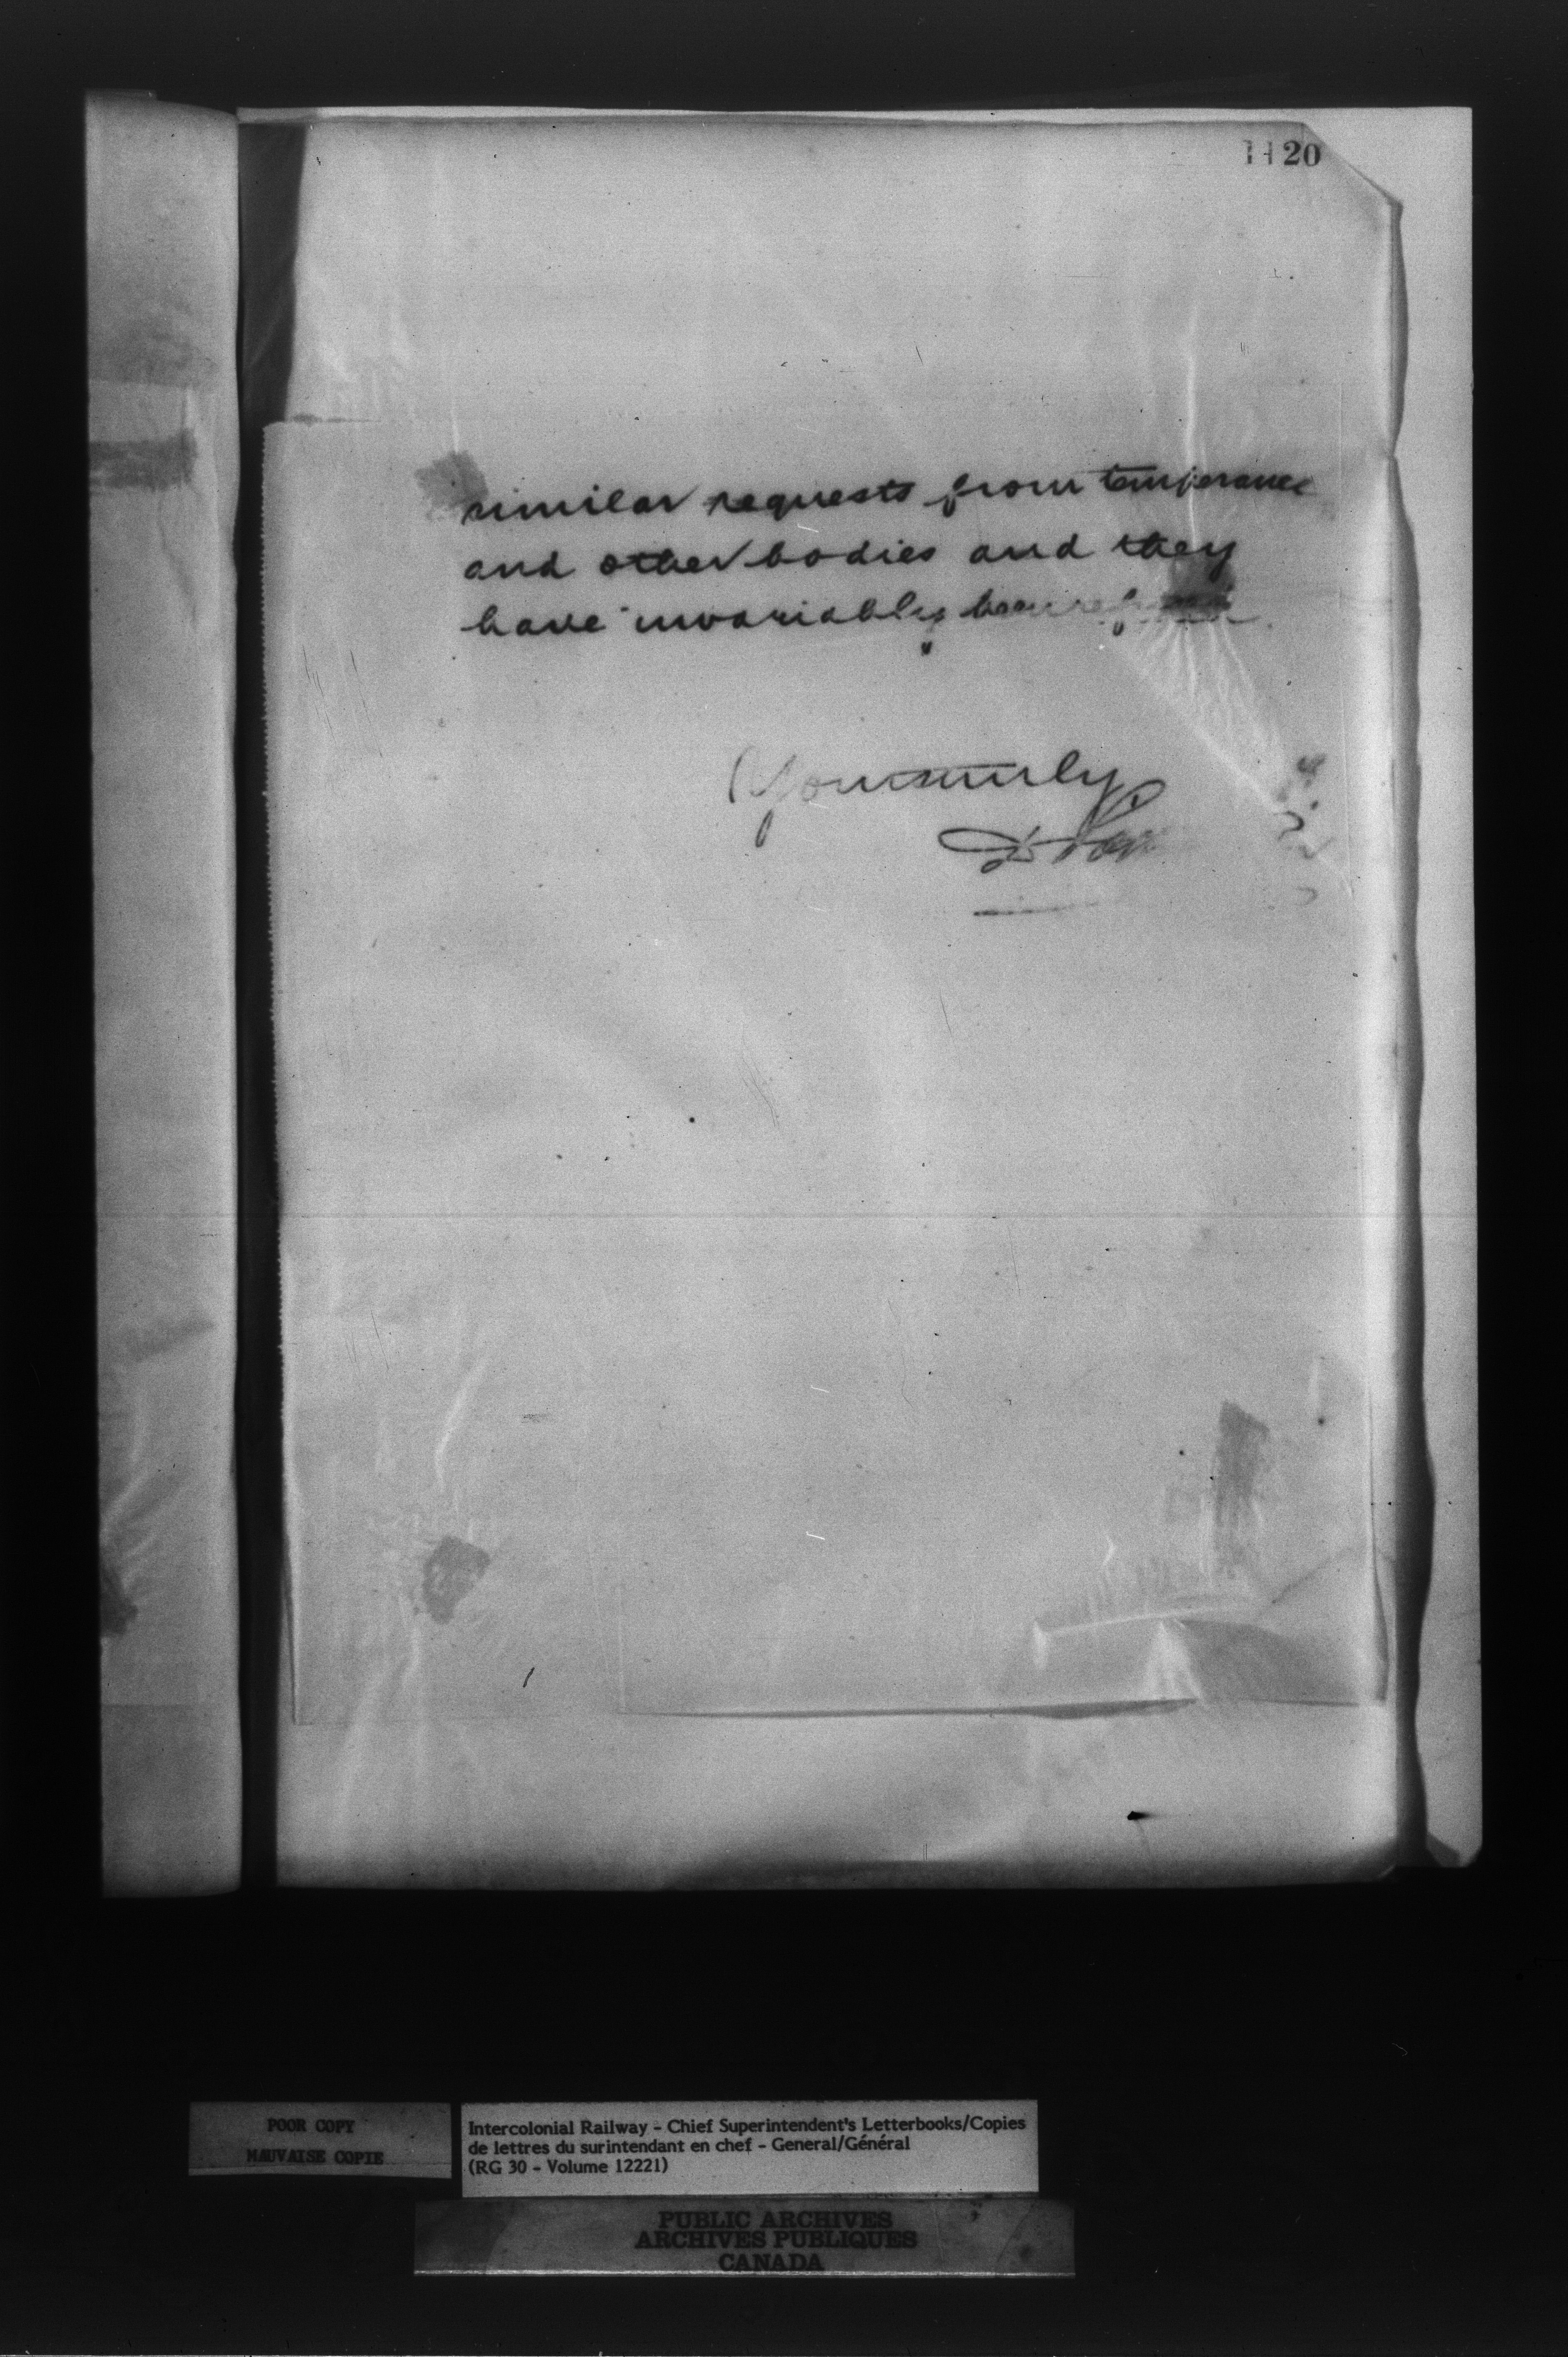 1120
similar requests from temperance
and other bodies and they
have invariably been refused.
Yours truly
POOR COPY
MAUVAISE COPIE
Intercolonial Railway - Chief Superintendent's Letterbooks/Copies
de lettres du surintendant en chef - General/Général
(RG 30 - Volume 12221)
PUBLIC ARCHIVES
ARCHIVES PUBLIQUES
CANADA